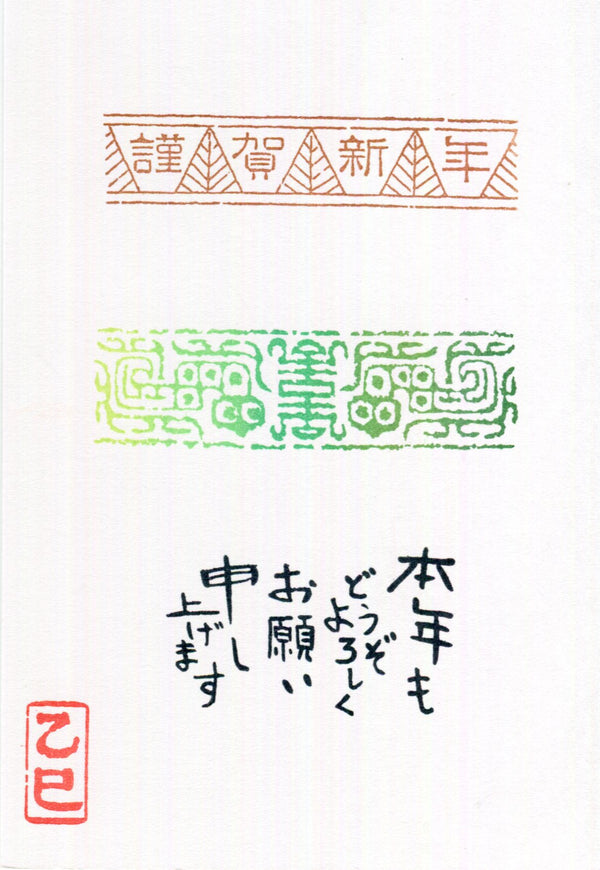 謹賀新年
本年も
どうぞ
よろしく
お願い
申し
上げます
乙巳